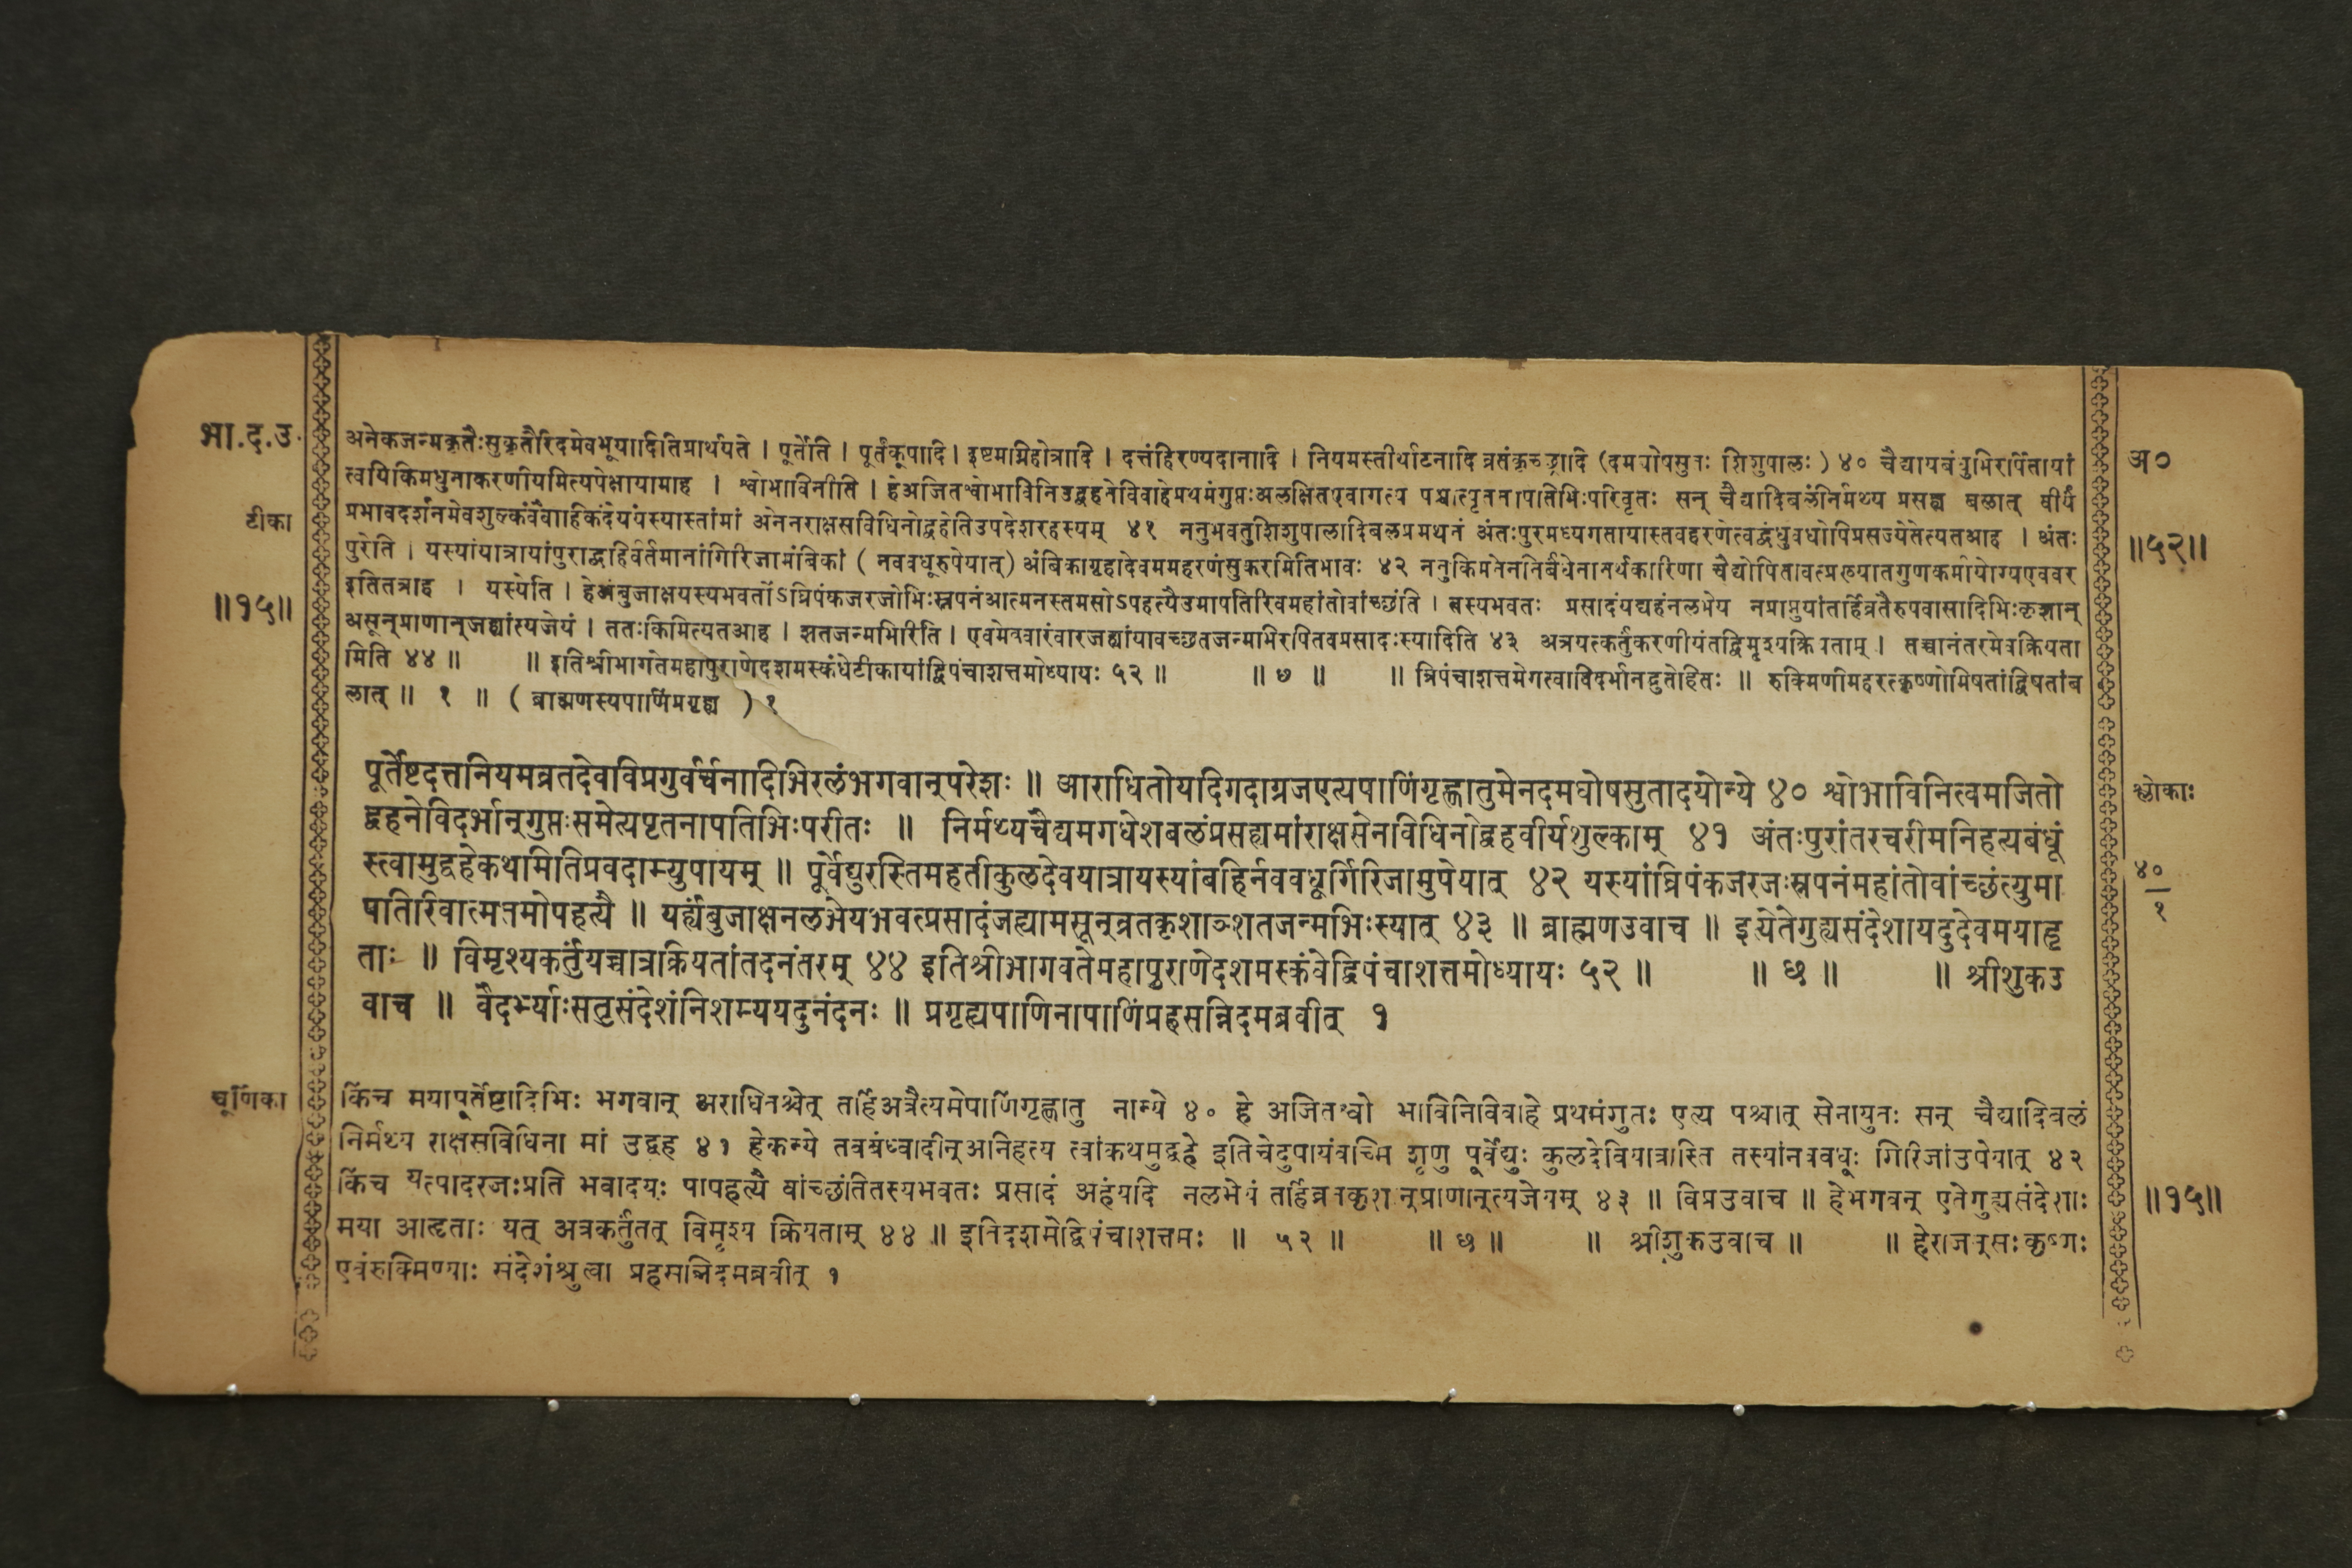 भा.द.उ.
टीका
॥१५॥
अनेकजन्मकृतैःसुकृतैरिदमेवभूयादितिप्रार्थयते । पूर्तेति । पूर्तंकूपादि । इष्टमग्निहोत्रादि । दत्तंहिरण्यदानादि । नियमस्तीर्थाटनादि व्रतंकृच्छ्रादि (दमघोषसुतः शिशुपालः) ४० चैद्यायबंधुभिरर्पितायां
त्वयिकिमधुनाकरणीयमित्यपेक्षायामाह । श्वोभाविनीति । हेअजितश्वोभाविनिउद्वहनेविवाहेप्रथमंगुप्तःअलक्षितएवागत्य पश्चात्पृतनापतिभिःपरिवृतः सन् चैद्यादिबलंनिर्मथ्य प्रसह्य बलात् वीर्य
प्रभावदर्शनमेवशुल्कंवैवाहिकंदेयंयस्यास्तांमां अनेनराक्षसविधिनोद्वहोतिउपदेशरहस्यम् ४१ ननुभवतुशिशुपालादिबलप्रमथनं अंतःपुरमध्यगतायास्तवहरणेत्वद्बंधुवधोपिप्रसज्येतेत्यतआह । अंतः
पुरेति । यस्यांयात्रायांपुराद्बहिर्वर्तमानांगिरिजामंबिकां ( नववधूरुपेयात्) अंबिकागृहादेवममहरणंसुकरमितिभावः ४२ ननुकिमनेननिर्बंधेनानर्थकारिणा चैद्योपितावत्प्रख्यातगुणकर्मायोग्यएववर
इतितत्राह । यस्येति । हेअंबुजाक्षयस्यभवतोंऽघ्रिपंकजरजोभिःस्नपनंआत्मनस्तमसोऽपहत्यैउमापतिरिवमहांतोवांच्छंति । तस्यभवतः प्रसादंयद्यहंनलभेय नप्राप्नुयांतर्हिव्रतैरुपवासादिभिःकृशान्
असून्प्राणान्जह्यांत्यजेयं । ततःकिमित्यतआह । शतजन्मभिरिति । एवमेववारंवारजह्यांयावच्छतजन्मभिरपितवप्रसादःस्यादिति ४३ अत्रयत्कर्तुंकरणीयंतद्विमृश्यक्रियताम् । तच्चानंतरमेवक्रियता
मिति ४४ ॥ ॥ इतिश्रीभागतेमहापुराणेदशमस्कंधेटीकायांद्विपंचाशत्तमोध्यायः ५२ ॥ ॥ ७ ॥ ॥ त्रिपंचाशत्तमेगत्वाविदर्भानद्भुतोहितः ॥ रुक्मिणीमहरत्कृष्णोमिषतांद्विषतांब
लात् ॥ १ ॥ ( ब्राह्मणस्यपाणिंप्रगृह्य ) १
अ०
॥५२॥
पूर्तेष्टदत्तनियमव्रतदेवविप्रगुर्वर्चनादिभिरलंभगवान्परेशः ॥ आराधितोयदिगदाग्रजएत्यपाणिंगृह्णातुमेनदमघोषसुतादयोन्ये ४० श्वोभाविनित्वमजितो
द्वहनेविदर्भान्गुप्तःसमेत्यपृतनापतिभिःपरीतः ॥ निर्मथ्यचैद्यमगधेशबलंप्रसह्यमांराक्षसेनविधिनोद्वहवीर्यशुल्काम् ४१ अंतःपुरांतरचरीमनिहत्यबंधूं
स्त्वामुद्वहेकथमितिप्रवदाम्युपायम् ॥ पूर्वेद्युरस्तिमहतीकुलदेवयात्रायस्यांबहिर्नववधूर्गिरिजामुपेयात् ४२ यस्यांघ्रिपंकजरजःस्नपनंमहांतोवांच्छंत्युमा
पतिरिवात्मतमोपहत्यै ॥ यर्ह्यंबुजाक्षनलभेयभवत्प्रसादंजह्यामसून्व्रतकृशाञ्शतजन्मभिःस्यात् ४३ ॥ ब्राह्मणउवाच ॥ इत्येतेगुह्यसंदेशायदुदेवमयाहृ
ताः ॥ विमृश्यकर्तुंयच्चात्रक्रियतांतदनंतरम् ४४ इतिश्रीभागवतेमहापुराणेदशमस्कंधेद्विपंचाशत्तमोध्यायः ५२ ॥ ॥ छ ॥ ॥ श्रीशुकउ
वाच ॥ वैदर्भ्याःसतुसंदेशंनिशम्ययदुनंदनः ॥ प्रगृह्यपाणिनापाणिंप्रहसन्निदमब्रवीत् १
श्लोकाः
४०
१
चूर्णिका
किंच मयापूर्तेष्टादिभिः भगवान् अराधितश्चेत् तर्हिअत्रैत्यमेपाणिंगृह्णातु नान्ये ४० हे अजितश्वो भाविनिविवाहे प्रथमंगुतः एत्य पश्चात् सेनायुतः सन् चैद्यादिबलं
निर्मथ्य राक्षसविधिना मां उद्वह ४१ हेकन्ये तवबंध्वादीन्अनिहत्य त्वांकथमुद्वहे इतिचेदुपायंवच्मि शृणु पूर्वेद्युः कुलदेवियात्रास्ति तस्यांनववधूः गिरिजांउपेयात् ४२
किंच यत्पादरजःप्रति भवादयः पापहत्यै वांच्छंतितस्यभवतः प्रसादं अहंयदि नलभेयं तर्हिव्रतकृशान्प्राणान्त्यजेयम् ४३ ॥ विप्रउवाच ॥ हेभगवन् एतेगुह्यसंदेशाः
मया आहृताः यत् अत्रकर्तुंतत् विमृश्य क्रियताम् ४४ ॥ इतिदशमेद्विपंचाशत्तमः ॥ ५२ ॥ ॥ छ ॥ ॥ श्रीशुकउवाच ॥ ॥ हेराजन्सःकृष्णः
एवंरुक्मिण्याः संदेशंश्रुत्वा प्रहसन्निदमब्रवीत् १
॥१५॥